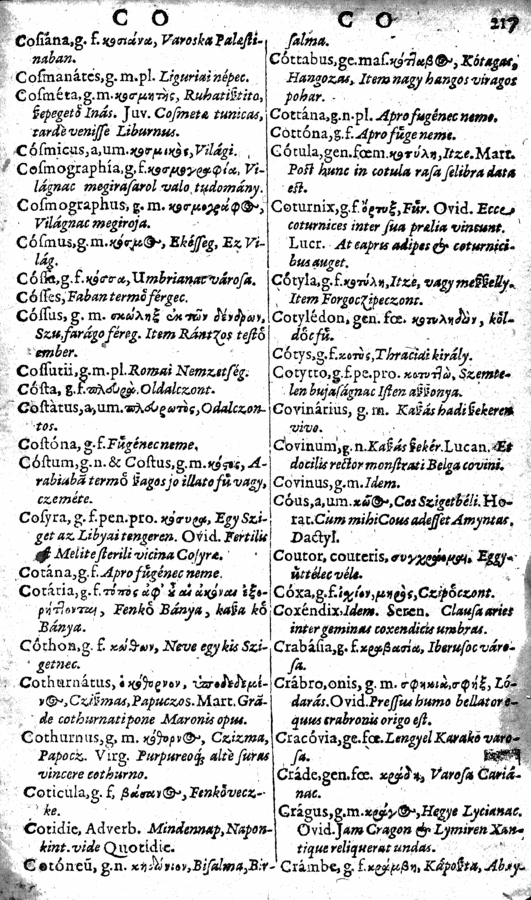 C O
C O
217
Cosiána, g. f. κοσιάνα, Varoska Palæsti-
naban.
Cosmanátes, g. m. pl. Liguriai népec.
Cosméta, g. m. κοσμητὴς, Ruhatißtito,
ßepegetö Inás. Juv. Cosmetæ tunicas,
tardè venisse Liburnus.
Cósmicus, a, um. κοσμικὸς, Világi.
Cosmographía, g. f. κοσμογραφία, Vi-
lágnac megirasarol valo tudomány.
Cosmographus, g. m. κοσμογράφος,
Világnac megiroja.
Cósmus, g. m. κόσμος, Ekésség, Ez Vi-
lág.
Cóssa, g. f. κόσσα, Umbrianac városa.
Cósses, Faban termő férgec.
Cóssus, g. m. σκώληξ ἐκ τῶν δένδρων,
Szu, farágo féreg. Item Rántzos testő
ember.
Cossutii, g. m. pl. Romai Nemzetség.
Cósta, g. f. πλευρὰ. Oldalczont.
Costàtus, a, um. πλευρωτὸς, Odalczon-
tos.
Costóna, g. f. Fügénec neme.
Cóstum, g. n. & Costus, g. m. κόστος, A-
rabiabā termő ßagos jo illato fű vagy,
czeméte.
Cosyra, g. f. pen. pro. κόσυρα, Egy Szi-
get az Libyai tengeren. Ovid. Fertilis
Melite sterili vicina Cosyræ.
Cotána, g. f. Apro fügénec neme.
Cotária, g. f. τόπος ἀφ' οὗ αἱ ἀκόναι ἐξο-
ρύττονται, Fenkő Bánya, kaßa kő
Bánya.
Cóthon, g. f. κώθων, Neve egy kis Szi-
getnec.
Cothurnátus, ὁ κόθορνον, ὑποδεδεμέ-
νος, Czizmas, Papuczos. Mart. Grā-
de cothurnati pone Maronis opus.
Cothurnus, g. m. κόθορνος, Czizma,
Papocz. Virg. Purpureoq; altè suras
vincere cothurno.
Coticula, g. f. βάσανος, Fenkővecz-
ke.
Cotidie, Adverb. Mindennap, Napon-
kint. vide Quotidie.
Cotóneū, g. n. κηδώνιον, Bisalma, Bir-
salma.
Cóttabus, ge. mas. κότταβος, Kótagas,
Hangozas, Item nagy hangos viragos
pohar.
Cottána, g. n. pl. Apro fugénec neme.
Cottóna, g. f. Apro füge neme.
Cótula, gen. fœm. κοτύλη, Itze. Mart.
Post hunc in cotula rasa selibra data
est.
Coturnix, g. f. ὄρτυξ, Fürr. Ovid. Ecce
coturnices inter sua prælia vincunt.
Lucr. At capris adipes & coturnici-
bus auget.
Cótyla, g. f. κοτύλη, Itze, vagy meßßelly.
Item Forgoczipeczont.
Cotylédon, gen. fœ. κοτυληδὼν, köl-
dőc fű.
Cótys, g. f. κοτὺς, Thraciai király.
Cotytto, g. f. pe. pro. κοτυτλὼ, Szemte-
len bujaságnac Isten aßßonya.
Covinárius, g. m. Kaßás hadi ßekeren
vivo.
Covinum, g. n. Kaßás ßekér. Lucan. Et
docilis rector monstrati Belga covini.
Covinus, g. m. Idem.
Cóus, a, um. κῶος, Cos Szigetbéli. Ho-
rat. Cum mihi Cous adesset Amyntas.
Dactyl.
Coutor, couteris, συγχράομαι, Eggy-
üttélec véle.
Cóxa, g. f. ἰχίον, μηρὸς, Czipőczont.
Coxéndix. Idem. Seren. Clausa aries
inter geminas coxendicis umbras.
Crabásia, g. f. κραβασία, Iberusoc váro-
sa.
Crábro, onis, g. m. σφηκιὰ, σφήξ, Ló-
darás. Ovid. Pressus humo bellator e-
quus crabronis origo est.
Cracóvia, ge. fœ. Lengyel Karakó varo-
sa.
Cráde, gen. fœ. κράδη, Varosa Cariá-
nac.
Crágus, g. m. κράγος, Hegye Lycianac.
Ovid. Jam Cragon & Lymiren Xan-
tique reliquerat undas.
Crámbe, g. f. κράμβη, Káposta, Abay-